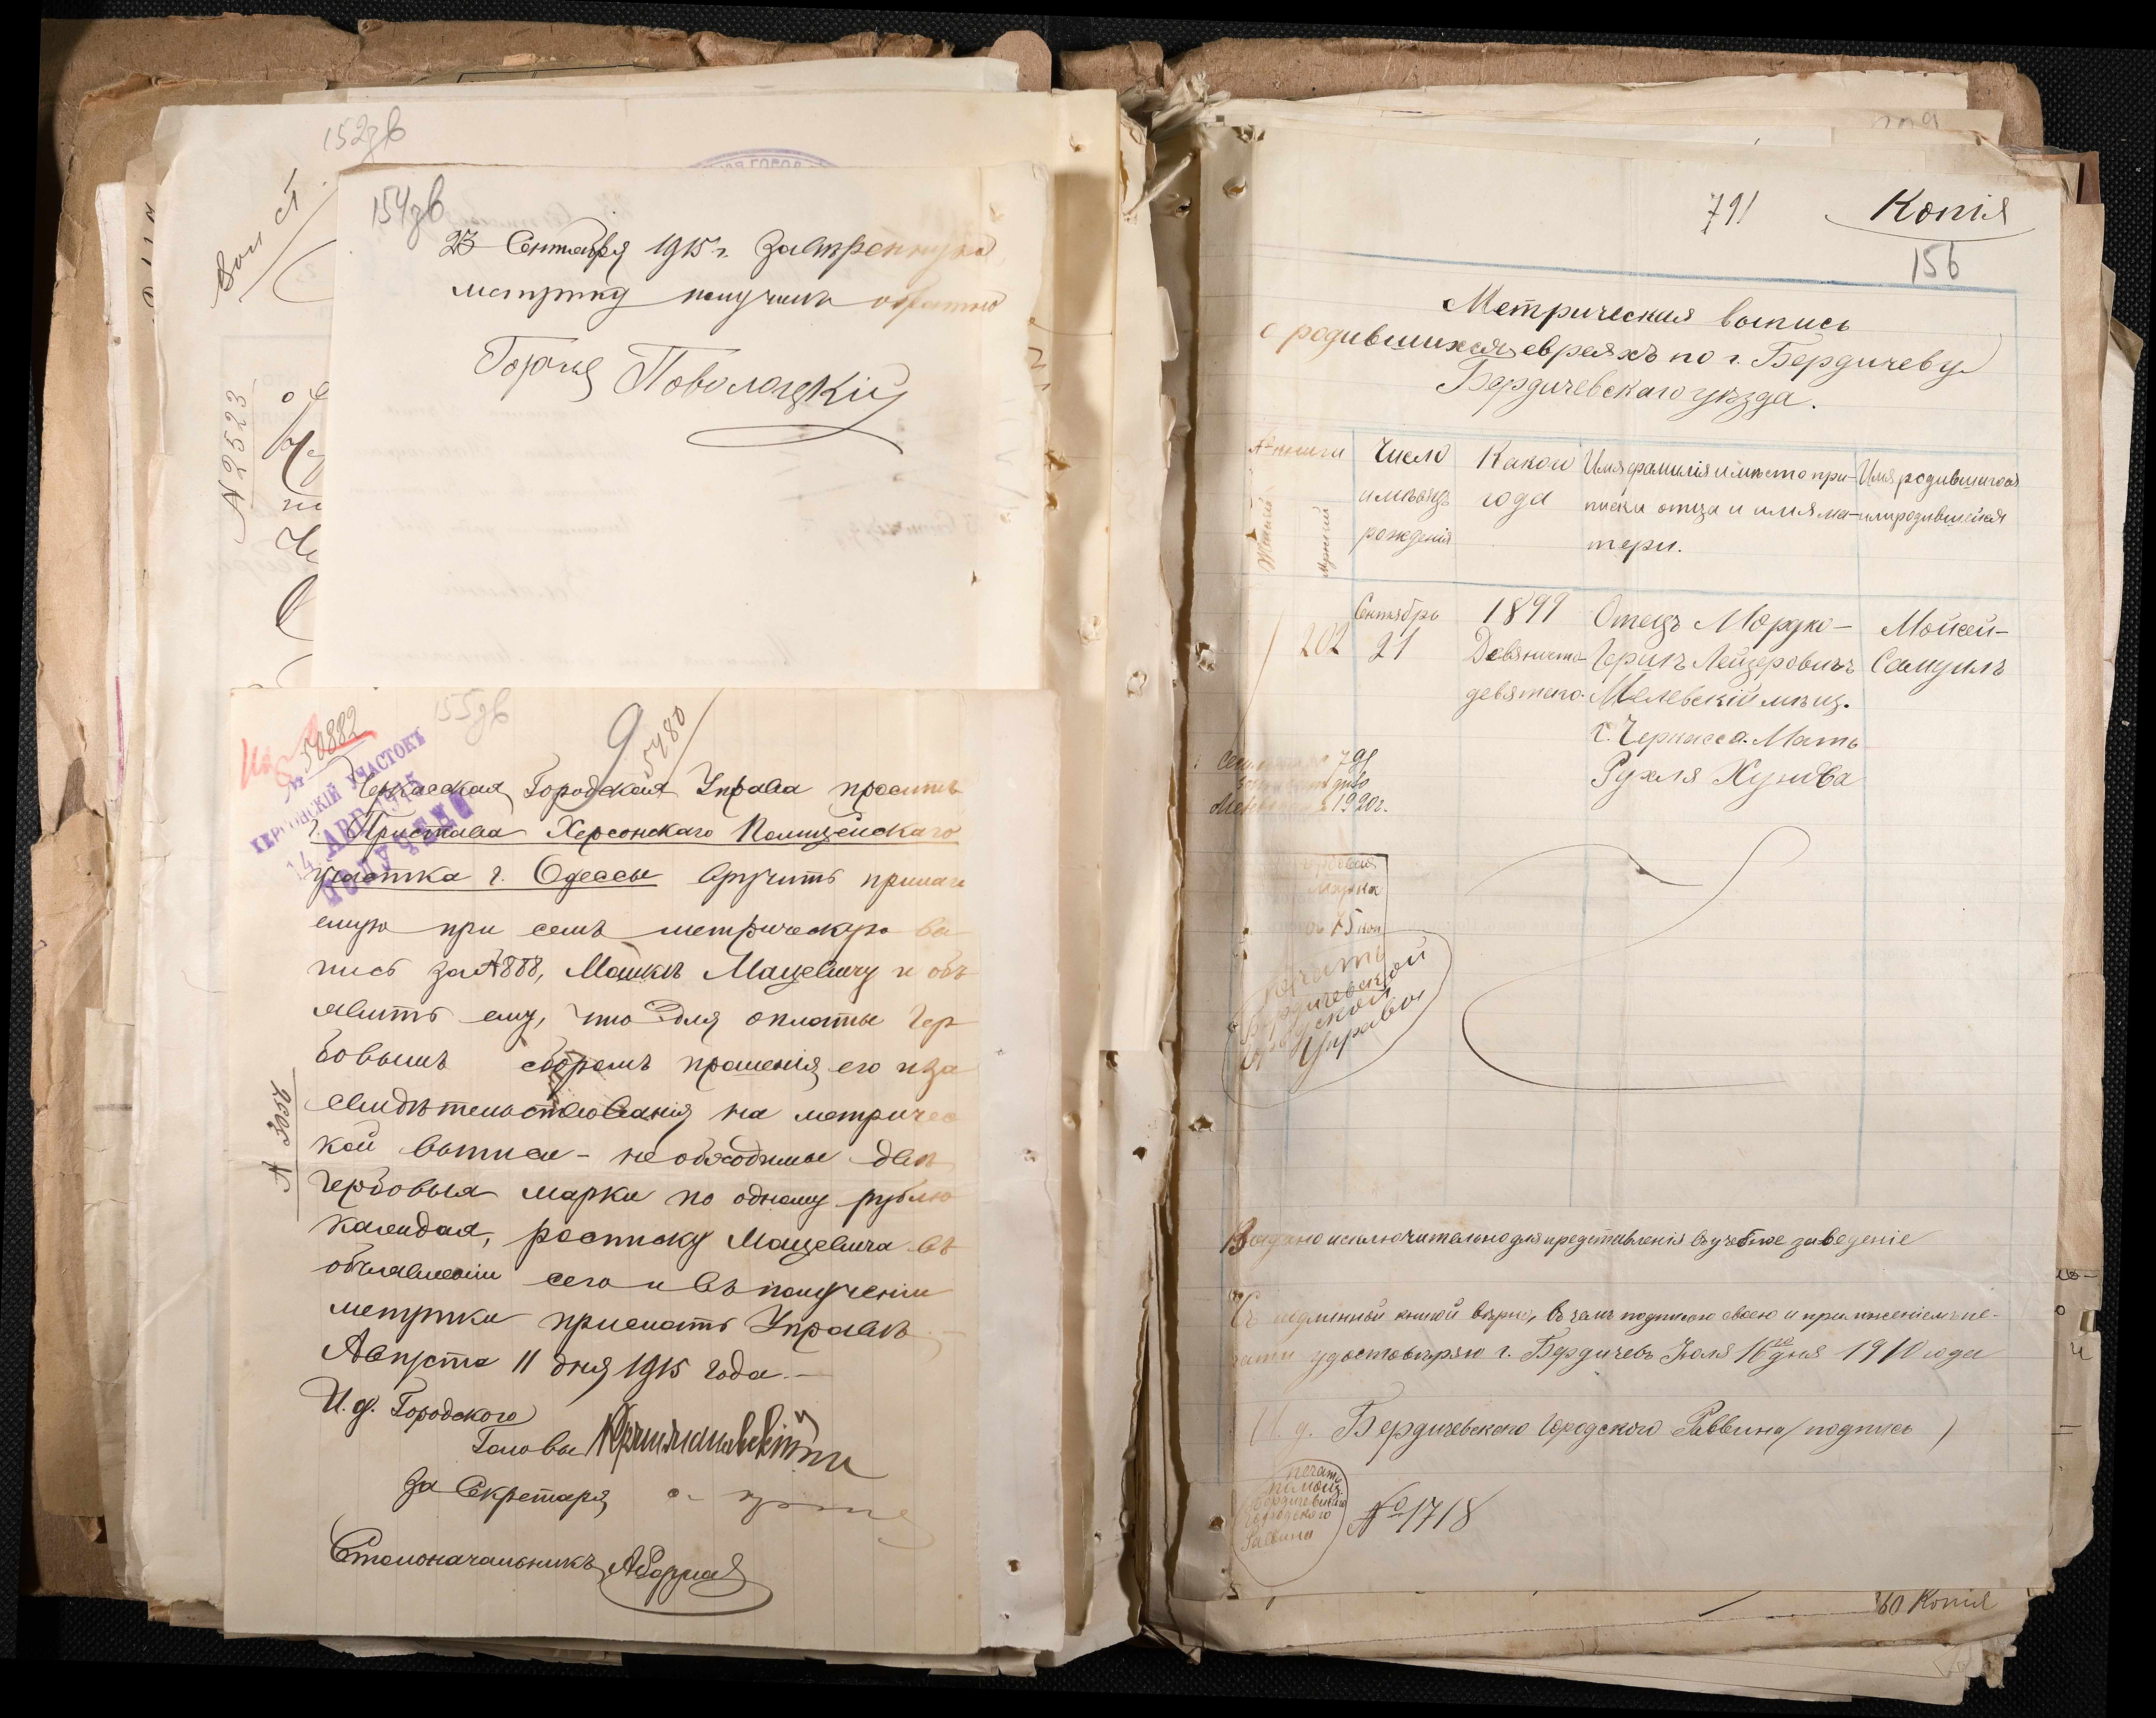 152зв
154зв
23 Сентября 1915 г. Завѣренную
метрику получилъ обратно
Повологцкій
№ 2523
155зв
№ 50882
9
5480
ХЕРСОНСКІЙ УЧАСТОКЪ
14 АВГ 1915
ПОЛУЧЕНО
Черкасская Городская Управа проситъ
г. Пристава Херсонскаго Полицейскаго
участка г. Одессы вручить прилага
емую при семъ метрическую вы
пись за №888, Мацевичу и объ
явить ему, что для оплаты гер
бовымъ сборомъ прошенія его и за
свидѣтельствованія на метричес
кой выписи - необходимы двѣ
гербовыя марки по одному рублю
каждая, росписку Мацевича въ
объявленіи сего и въ полученіи
метрики прислать Управѣ.
Августа 11 дня 1915 года.
№ 3056
И. д. Городского
Головы
За Секретаря
Столоначальникъ
791 Копія
156
Метрическая выпись
о родившихся евреяхъ по г. Бердичеву
Бердичевскаго уѣзда.
№ книги
Женскій
Мужской
Число
и мѣсяцъ
рожденія
Какого
года
Имя фамилія и мѣсто при-
писки отца и имя ма-
тери.
Имя родившагося
или родившейся
202
Сентябрь
21
1899
Девяносто
девятаго.
Отецъ Мордко-
Гершъ Лейзеровичъ
Мѣлевскій мѣщ.
г. Черкасса. Мать
Рухля Хунова
Мойсей-
Самуилъ
791
1920г.
Гербовая
марка
въ 75 коп
Печать
Бердичевской
Городской
Управы
Выдано исключительно для представленія въ учебное заведеніе
Съ подлинной книгой вѣрно, въ чемъ подписью своею и приложеніемъ пе-
чати удостовѣряю г. Бердичевъ Іюля 16го дня 1910 года
И. д. Бердичевскаго Городского Раввина (подпись)
печать
помощ.
Бердичевскаго
городского
Раввина
№ 1718
160 Копія